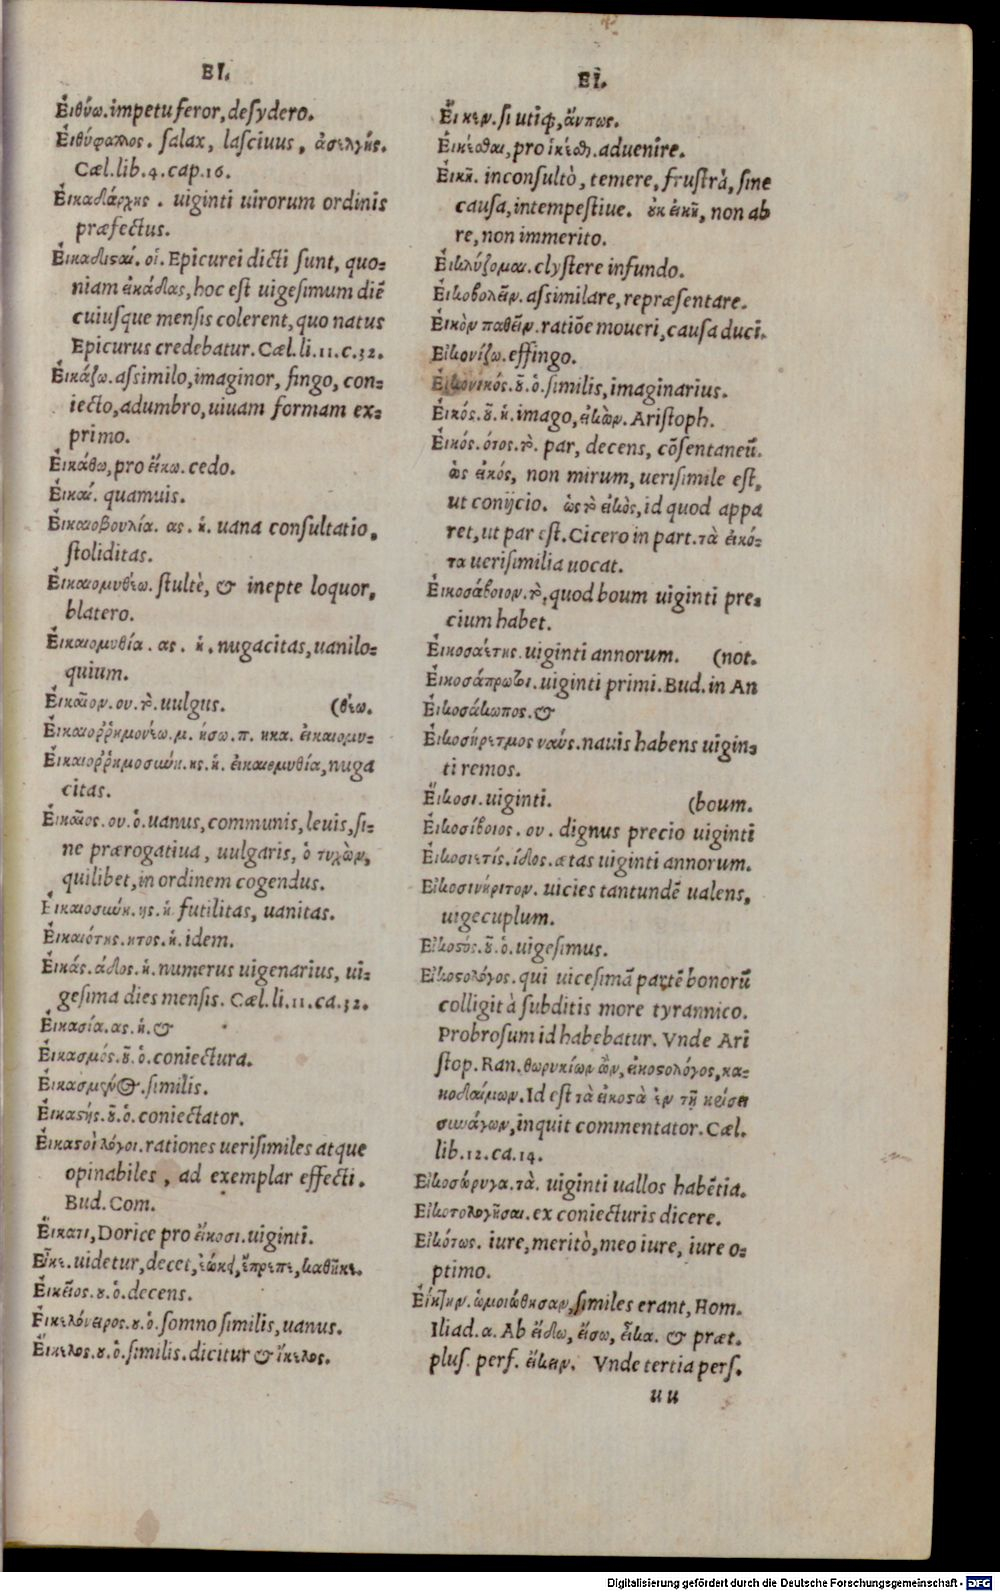 EI.
Εἰθύω. impetu feror, desydero.
Εἰθύφαλλος. salax, lasciuus, ἀσελγής.
Cæl. lib. 4. cap. 16.
Εἰκαδάρχης. uiginti uirorum ordinis
præfectus.
Εἰκαδισαί. οἱ. Epicurei dicti sunt, quo-
niam εἰκάδας, hoc est uigesimum diē
cuiusque mensis colerent, quo natus
Epicurus credebatur. Cæl. li. 11. c. 32.
Εἰκάζω. assimilo, imaginor, fingo, con-
iecto, adumbro, uiuam formam ex-
primo.
Εἰκάθω, pro εἴκω. cedo.
Εἰκαί. quamuis.
Εἰκαιοβουλία. ας. ἡ. uana consultatio,
stoliditas.
Εἰκαιομυθέω. stultè, & inepte loquor,
blatero.
Εἰκαιομυθία. ας. ἡ. nugacitas, uanilo-
quium.
Εἰκαῖον. ου. τὸ. uulgus. (θέω.
Εἰκαιοῤῥημονέω. μ. ήσω. π. ηκα. εἰκαιομυ-
Εἰκαιοῤῥημοσύνη. ης. ἡ. εἰκαιομυθία, nuga
citas.
Εἰκαῖος. ου. ὁ. uanus, communis, leuis, si-
ne prærogatiua, uulgaris, ὁ τυχὼν,
quilibet, in ordinem cogendus.
Εἰκαιοσύνη. ης. ἡ. futilitas, uanitas.
Εἰκαιότης. ητος. ἡ. idem.
Εἰκάς. άδος. ἡ. numerus uigenarius, ui-
gesima dies mensis. Cæl. li. 11. ca. 32.
Εἰκασία. ας. ἡ. &
Εἰκασμός. οῦ. ὁ. coniectura.
Εἰκασμένος. similis.
Εἰκαστής. οῦ. ὁ. coniectator.
Εἰκαστοὶ λόγοι. rationes uerisimiles atque
opinabiles, ad exemplar effecti.
Bud. Com.
Εἴκατι, Dorice pro εἴκοσι. uiginti.
Εἶκε. uidetur, decet, ἐώκει, ἔπρεπε, καθῆκε.
Εἰκεῖος. ου. ὁ. decens.
Εἰκελόνειρος. ου. ὁ. somno similis, uanus.
Εἴκελος. ου. ὁ. similis. dicitur & ἴκελος.
EI.
Εἴ κεν. si utiq;, ἄνπως.
Εἰκέσθαι, pro ἱκέσθαι. aduenire.
Εἰκῆ. inconsultò, temere, frustrà, sine
causa, intempestiue. οὐκ εἰκῆ, non ab
re, non immerito.
Εἰκλύζομαι. clystere infundo.
Εἰκοβολεῖν. assimilare, repræsentare.
Εἰκὸν παθεῖν. ratiōe moueri, causa duci.
Εἰκονίζω. effingo.
Εἰκονικός. οῦ. ὁ. similis, imaginarius.
Εἰκός. οῦ. ἡ. imago, εἰκὼν. Aristoph.
Εἰκός. ότος. τὸ. par, decens, cōsentaneū.
ὡς εἰκός, non mirum, uerisimile est,
ut conijcio. ὡς τὸ εἰκὸς, id quod appa
ret, ut par est. Cicero in part. τὰ εἰκό-
τα uerisimilia uocat.
Εἰκοσάβοιον. τὸ. quod boum uiginti pre-
cium habet.
Εἰκοσαέτης. uiginti annorum. (not.
Εἰκοσάπρωτοι. uiginti primi. Bud. in An
Εἰκοσάκωπος. &
Εἰκοσήρετμος ναῦς. nauis habens uigin-
ti remos.
Εἴκοσι. uiginti. (boum.
Εἰκοσίβοιος. ου. dignus precio uiginti
Εἰκοσιετίς. ίδος. ætas uiginti annorum.
Εἰκοσινήριτον. uicies tantundē ualens,
uigecuplum.
Εἰκοστός. οῦ. ὁ. uigesimus.
Εἰκοστολόγος. qui uicesimā partē bonorū
colligit à subditis more tyrannico.
Probrosum id habebatur. Vnde Ari
stop. Ran. θωρυκίων ὢν, εἰκοστολόγος, κα-
κοδαίμων. Id est τὰ εἰκοστὰ ἐν τῇ κρίσει
συνάγων, inquit commentator. Cæl.
lib. 12. ca. 14.
Εἰκοσώρυγα. τὰ. uiginti uallos habētia.
Εἰκοτολογῆσαι. ex coniecturis dicere.
Εἰκότως. iure, meritò, meo iure, iure o-
ptimo.
Εἴκτην. ὡμοιώθησαν, similes erant, Hom.
Iliad. α. Ab εἴδω, εἴσω, εἶκα. & præt.
plus. perf. εἴκειν. Vnde tertia pers.
uu
Digitalisierung gefördert durch die Deutsche Forschungsgemeinschaft - DFG